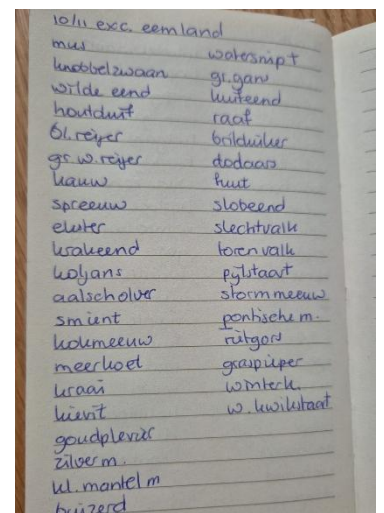 10/11 exc. eemland
mus
knobbelzwaan
wilde eend
houtduif
bl. reiger
gr. w. reiger
kauw
spreeuw
ekster
krakeend
kolgans
aalscholver
smient
kokmeeuw
meerkoet
kraai
kievit
goudplevier
zilver m.
kl. mantel m
buizerd
watersnip +
gr. gans
kuifeend
raaf
brilduiker
dodaars
fuut
slobeend
slechtvalk
torenvalk
pijlstaart
stormmeeuw
pontische m.
rietgors
graspieper
winterk.
w. kwikstaart